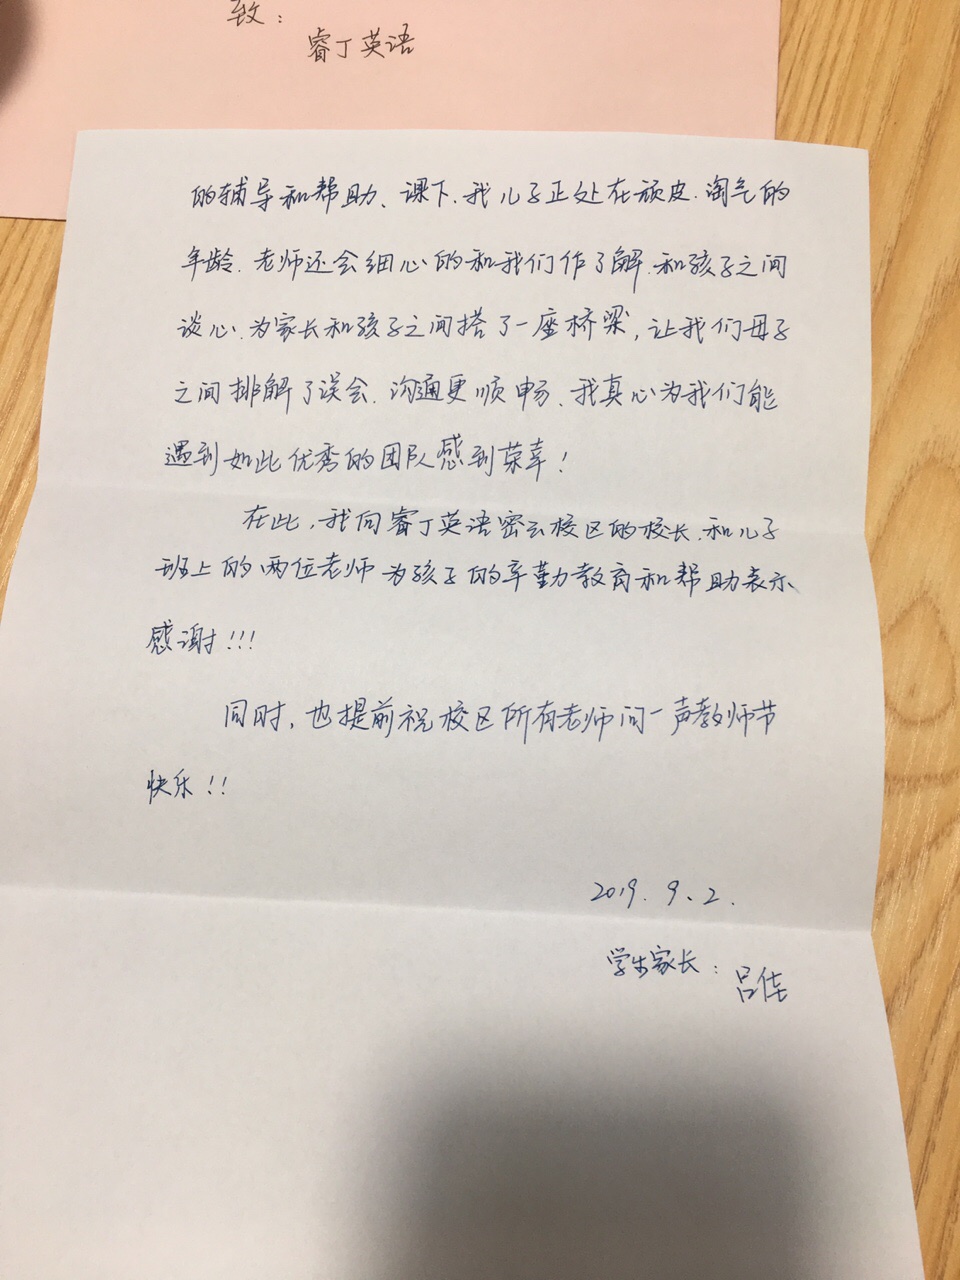 致：
睿丁英语
的辅导和帮助、课下.我儿子正处在顽皮.淘气的
年龄.老师还会细心的和我们作了解.和孩子之间
谈心.为家长和孩子之间搭了一座桥梁，让我们母子
之间排解了误会.沟通更顺畅、我真心为我们能
遇到如此优秀的团队感到荣幸！
在此，我向睿丁英语密云校区的校长.和儿子
班上的两位老师为孩子的辛勤教育和帮助表示
感谢！！！
同时，也提前祝校区所有老师问一声教师节
快乐！！
2019.9.2.
学生家长：吕佳